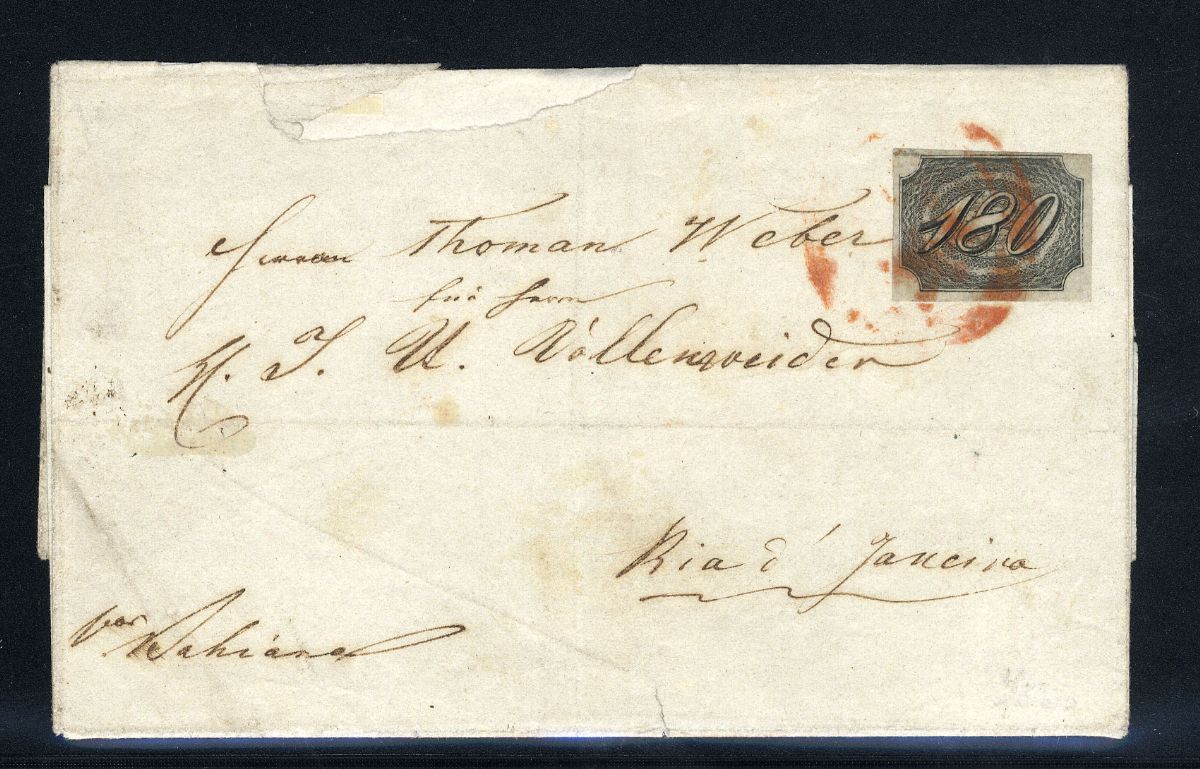 180
Herrn Thoman Weber
für Herrn
H. J. U. Vollenweider
Ria d' Janeiro
per Bahiana